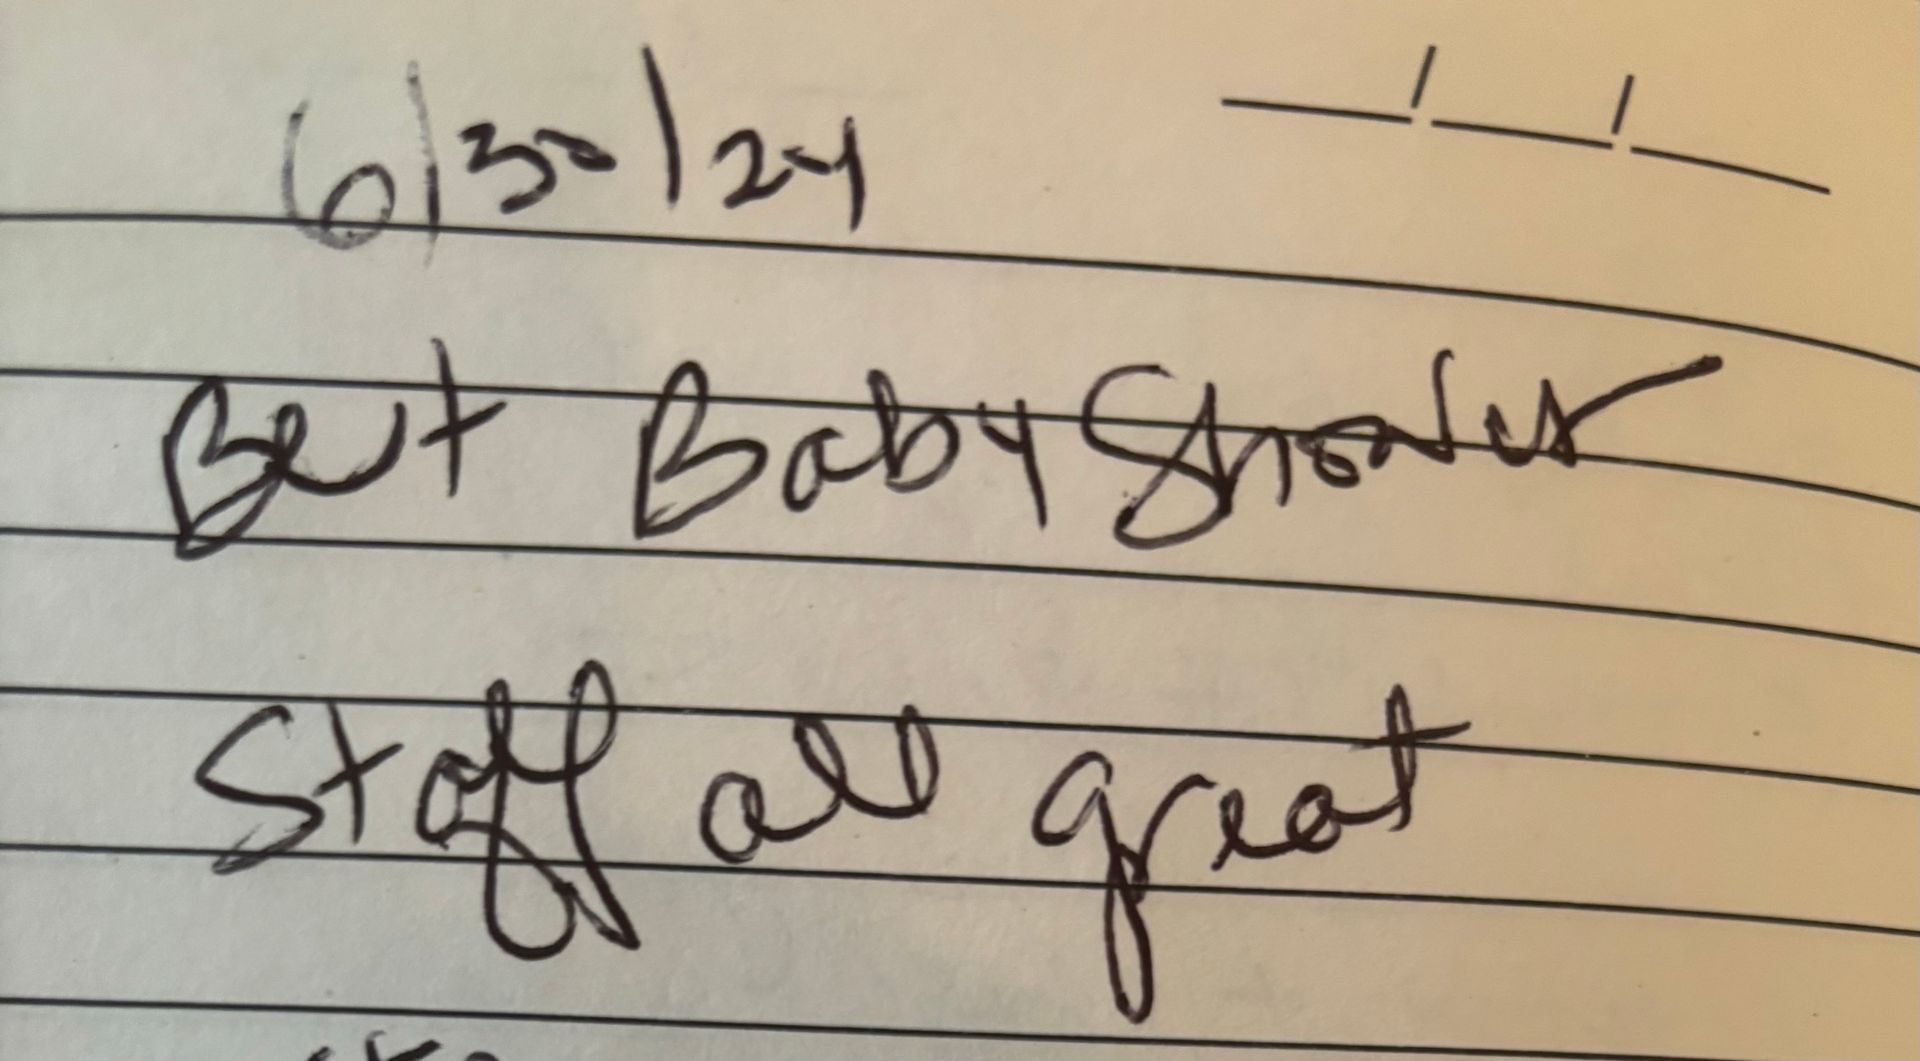 6/30/24
Best Baby Shower
Staff all great